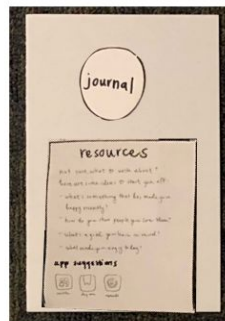 journal
resources
not sure what to write about?
here are some ideas to start you off:
- what is something that has made you
happy recently?
- how do you show people you love them?
- what's a goal you have in mind?
- what made you angry today?
app suggestions